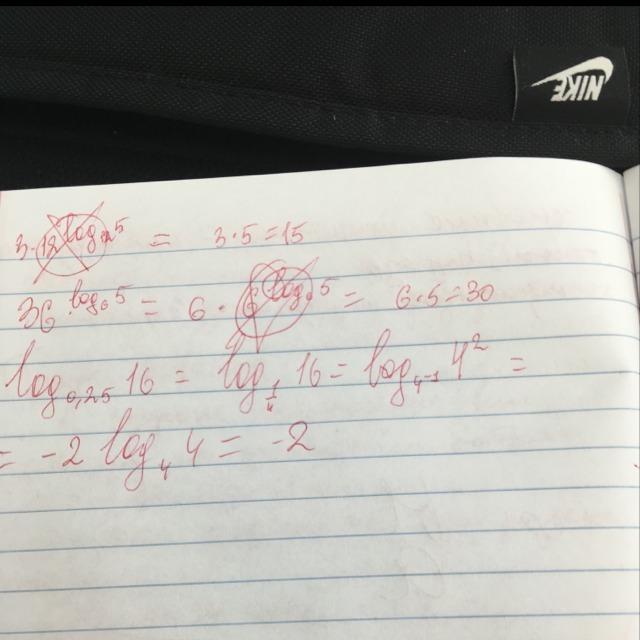 NIKE
3·12^{log_{12}5} = 3·5=15
36^{log_6 5} = 6·6^{log_6 5} = 6·5=30
log_{0,25} 16 = log_{\frac{1}{4}} 16 = log_{4^{-1}} 4^2 =
= -2 log_4 4 = -2